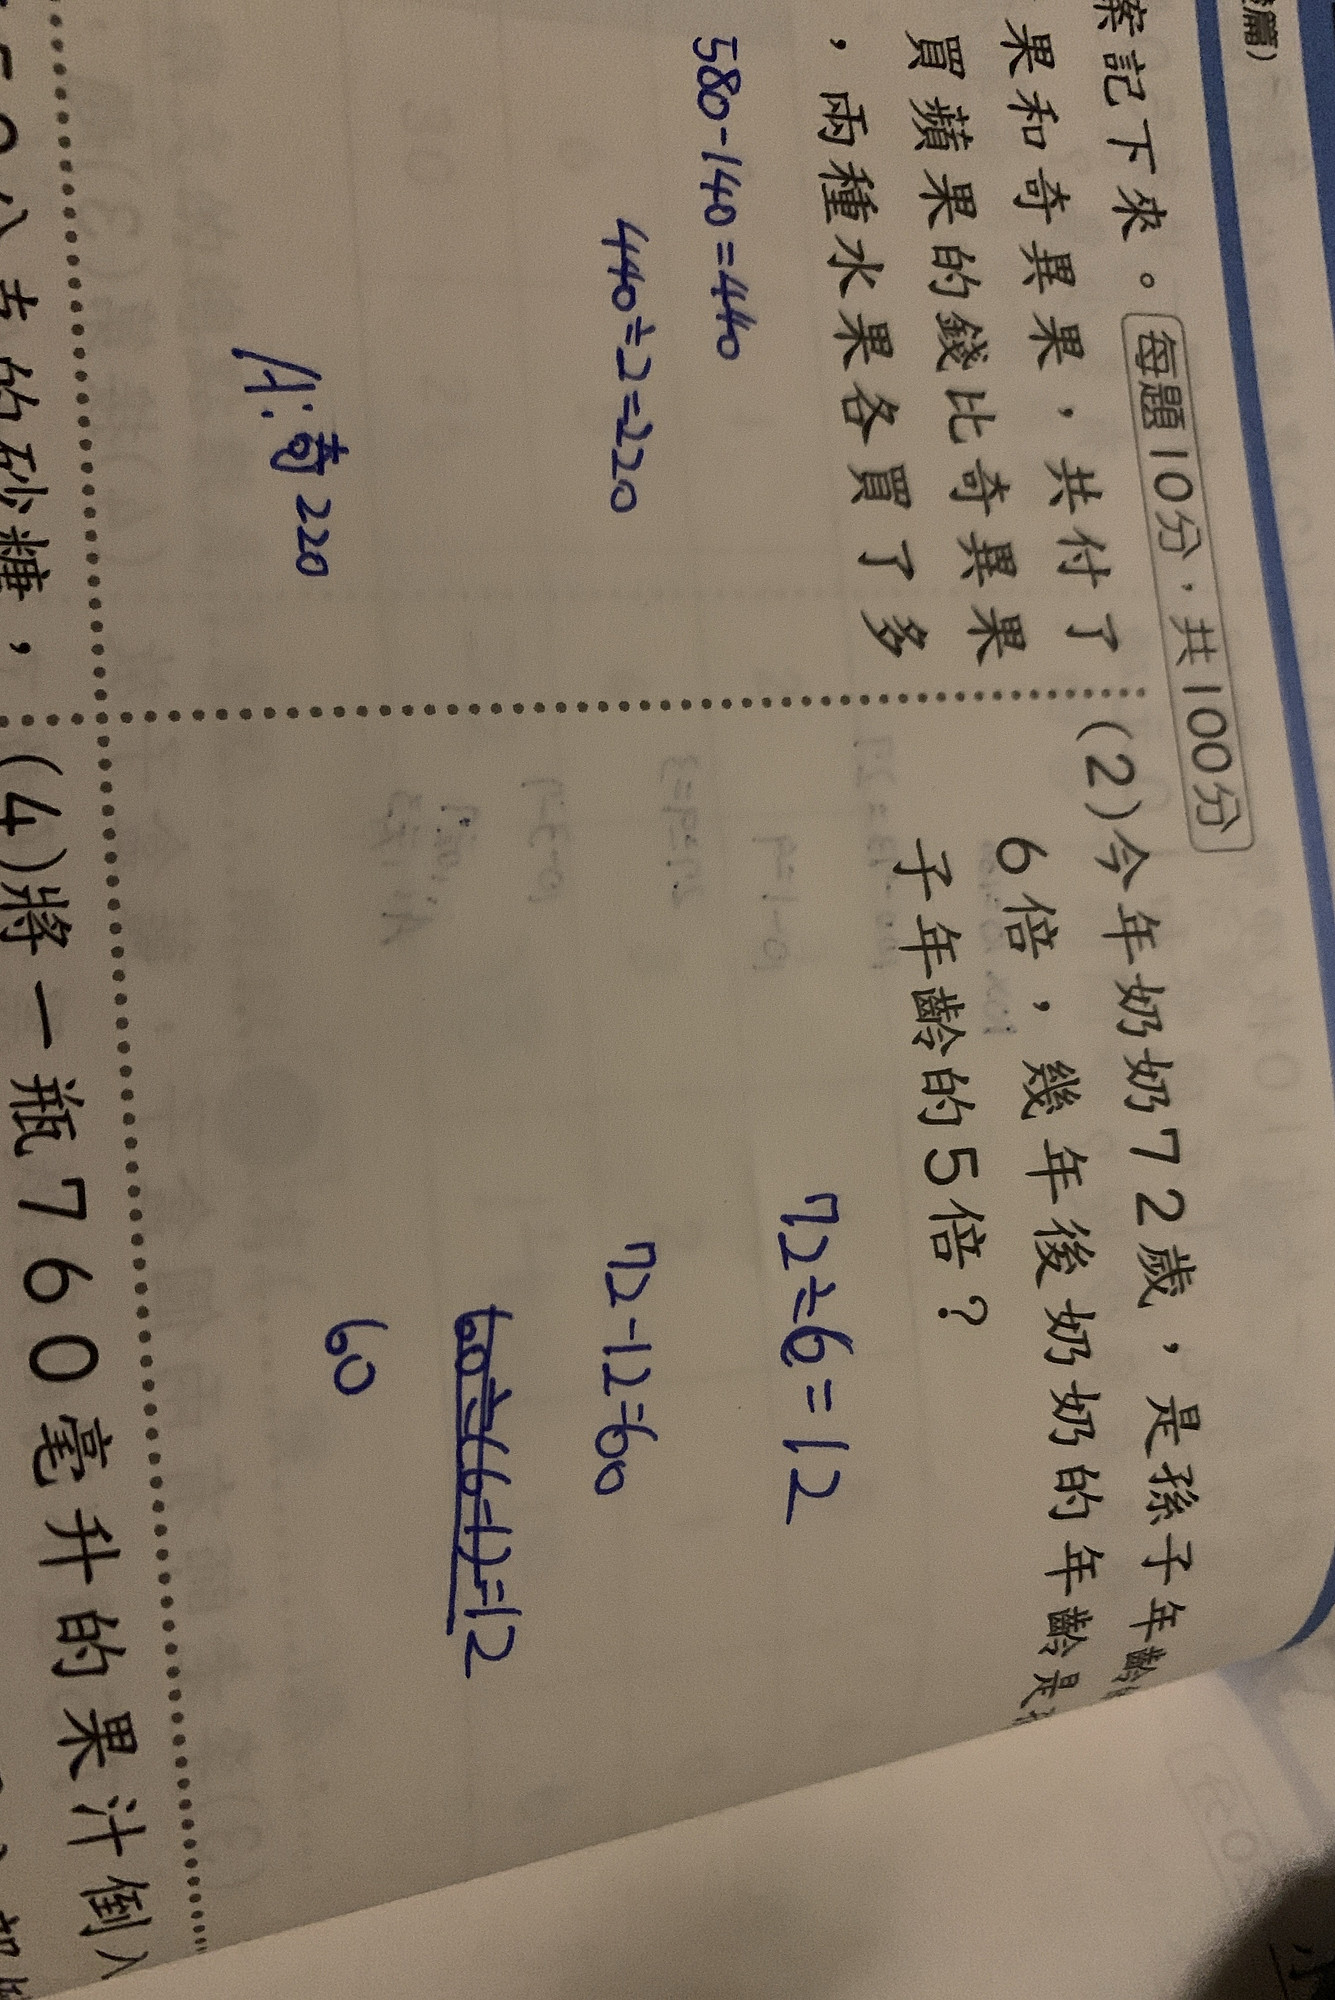 篇)
案記下來。每題10分，共100分
果和奇異果，共付了
買蘋果的錢比奇異果
，兩種水果各買了多
580-140=440
440÷2=220
A:奇220
(2)今年奶奶72歲，是孫子年齡
6倍，幾年後奶奶的年齡是
子年齡的5倍？
72÷6=12
72-12=60
60÷(6-1)=12
60
的砂糖，
(4)將一瓶760毫升的果汁倒入